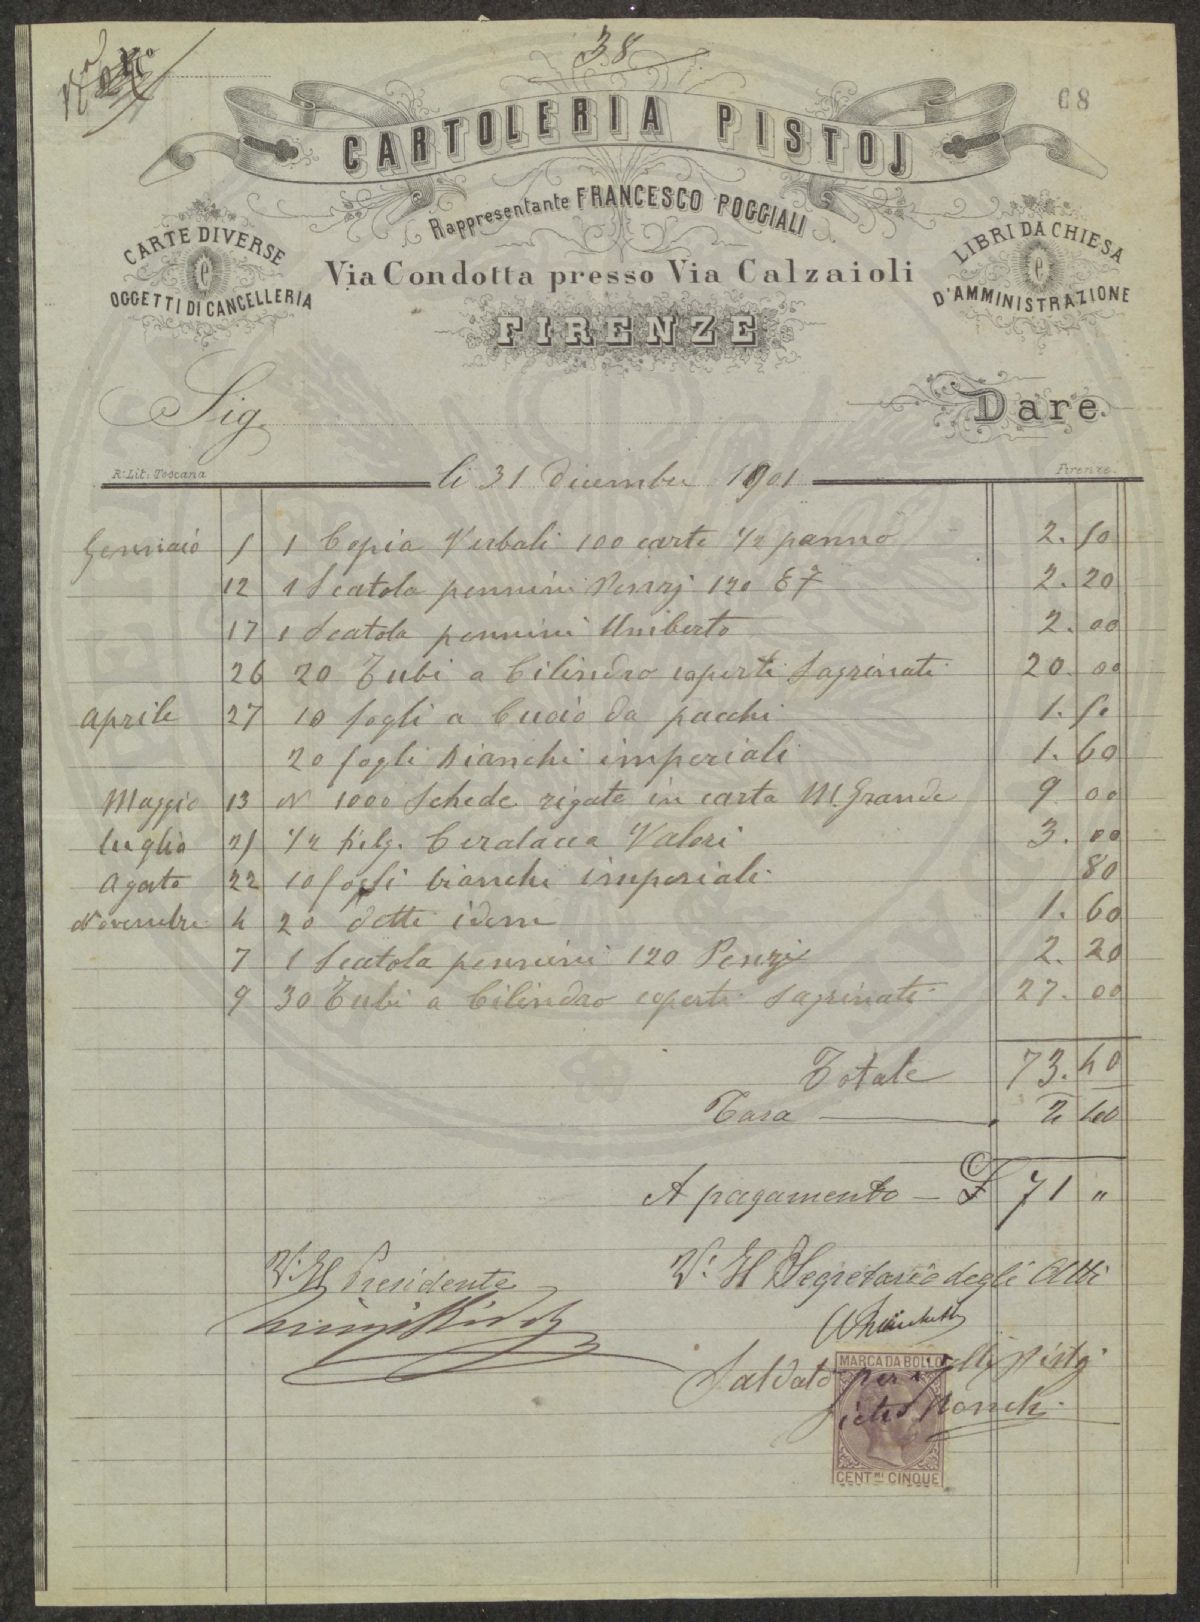 38
68
CARTOLERIA PISTOJ
Rappresentante FRANCESCO POGGIALI
CARTE DIVERSE
e
OGGETTI DI CANCELLERIA
LIBRI DA CHIESA
e
D'AMMINISTRAZIONE
Via Condotta presso Via Calzaioli
FIRENZE
Sig. Dare.
R. Lit. Toscana
Firenze.
li 31 Dicembre 1901
Gennaio 5 1 Copia Verbali 100 carte 1/2 panno 2. 50
12 1 Scatola pennini Penzj 120 EF 2. 20
17 1 Scatola pennini Umberto 2. 00
26 20 Tubi a Cilindro coperti Sagrinati 20. 00
Aprile 27 10 fogli a Cuoio da pacchi 1. 50
20 fogli Bianchi imperiali 1. 60
Maggio 13 N 1000 Schede rigate in carta M. Grande 9 00
Luglio 25 1/2 Kilg. Ceralacca Valori 3. 00
Agosto 22 10 fogli bianchi imperiali 80
Novembre 4 20 detti idem 1. 60
7 1 Scatola pennini 120 Penzj 2. 20
9 30 Tubi a Cilindro coperti Sagrinati 27. 00
Totale 73. 40
Tara 2 40
A pagamento — £ 71 "
V.° Il Presidente
V.° Il Segretario degli Atti
Saldato per
MARCA DA BOLLO
CENT.MI CINQUE